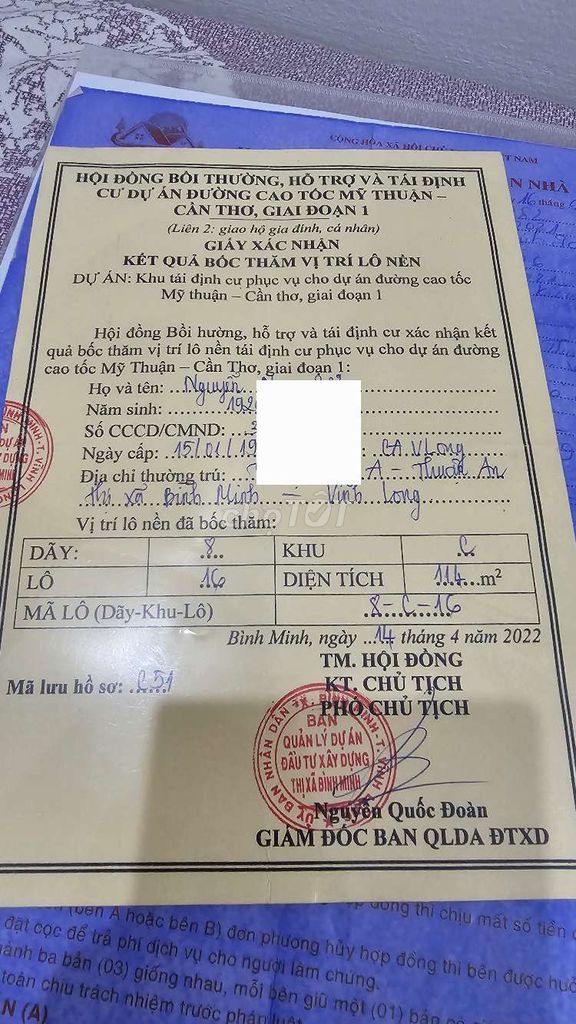 CỘNG HÒA XÃ HỘI CHỦ
T NAM
N NHÀ
HỘI ĐỒNG BỒI THƯỜNG, HỖ TRỢ VÀ TÁI ĐỊNH
CƯ DỰ ÁN ĐƯỜNG CAO TỐC MỸ THUẬN –
CẦN THƠ, GIAI ĐOẠN 1
(Liên 2: giao hộ gia đình, cá nhân)
GIẤY XÁC NHẬN
KẾT QUẢ BỐC THĂM VỊ TRÍ LÔ NỀN
DỰ ÁN: Khu tái định cư phục vụ cho dự án đường cao tốc
Mỹ thuận – Cần thơ, giai đoạn 1
Hội đồng Bồi hường, hỗ trợ và tái định cư xác nhận kết
quả bốc thăm vị trí lô nền tái định cư phục vụ cho dự án đường
cao tốc Mỹ Thuận – Cần Thơ, giai đoạn 1:
Họ và tên: Nguyễn
Năm sinh:
Số CCCD/CMND:
Ngày cấp: 15/01/19 CA VLong
Địa chỉ thường trú: A – Thuận An
thị xã Bình Minh – Vĩnh Long
chợTỐT
Vị trí lô nền đã bốc thăm:
DÃY: 8 KHU C
LÔ 16 DIỆN TÍCH 114 m²
MÃ LÔ (Dãy-Khu-Lô) 8-C-16
Bình Minh, ngày 14 tháng 4 năm 2022
TM. HỘI ĐỒNG
Mã lưu hồ sơ: C51
KT. CHỦ TỊCH
PHÓ CHỦ TỊCH
BAN
QUẢN LÝ DỰ ÁN
ĐẦU TƯ XÂY DỰNG
THỊ XÃ BÌNH MINH
ỦY BAN NHÂN DÂN TX. BÌNH MINH-T. VĨNH LONG
Nguyễn Quốc Đoàn
GIÁM ĐỐC BAN QLDA ĐTXD
(bên A hoặc bên B) đơn phương hủy hợp đồng thì bên được
đồng thì chịu mất số tiền
đặt cọc để trả phí dịch vụ cho người làm chứng.
ành ba bản (03) giống nhau, mỗi bên giữ một (01) bản
toàn chịu trách nhiệm trước pháp luật
N (A)